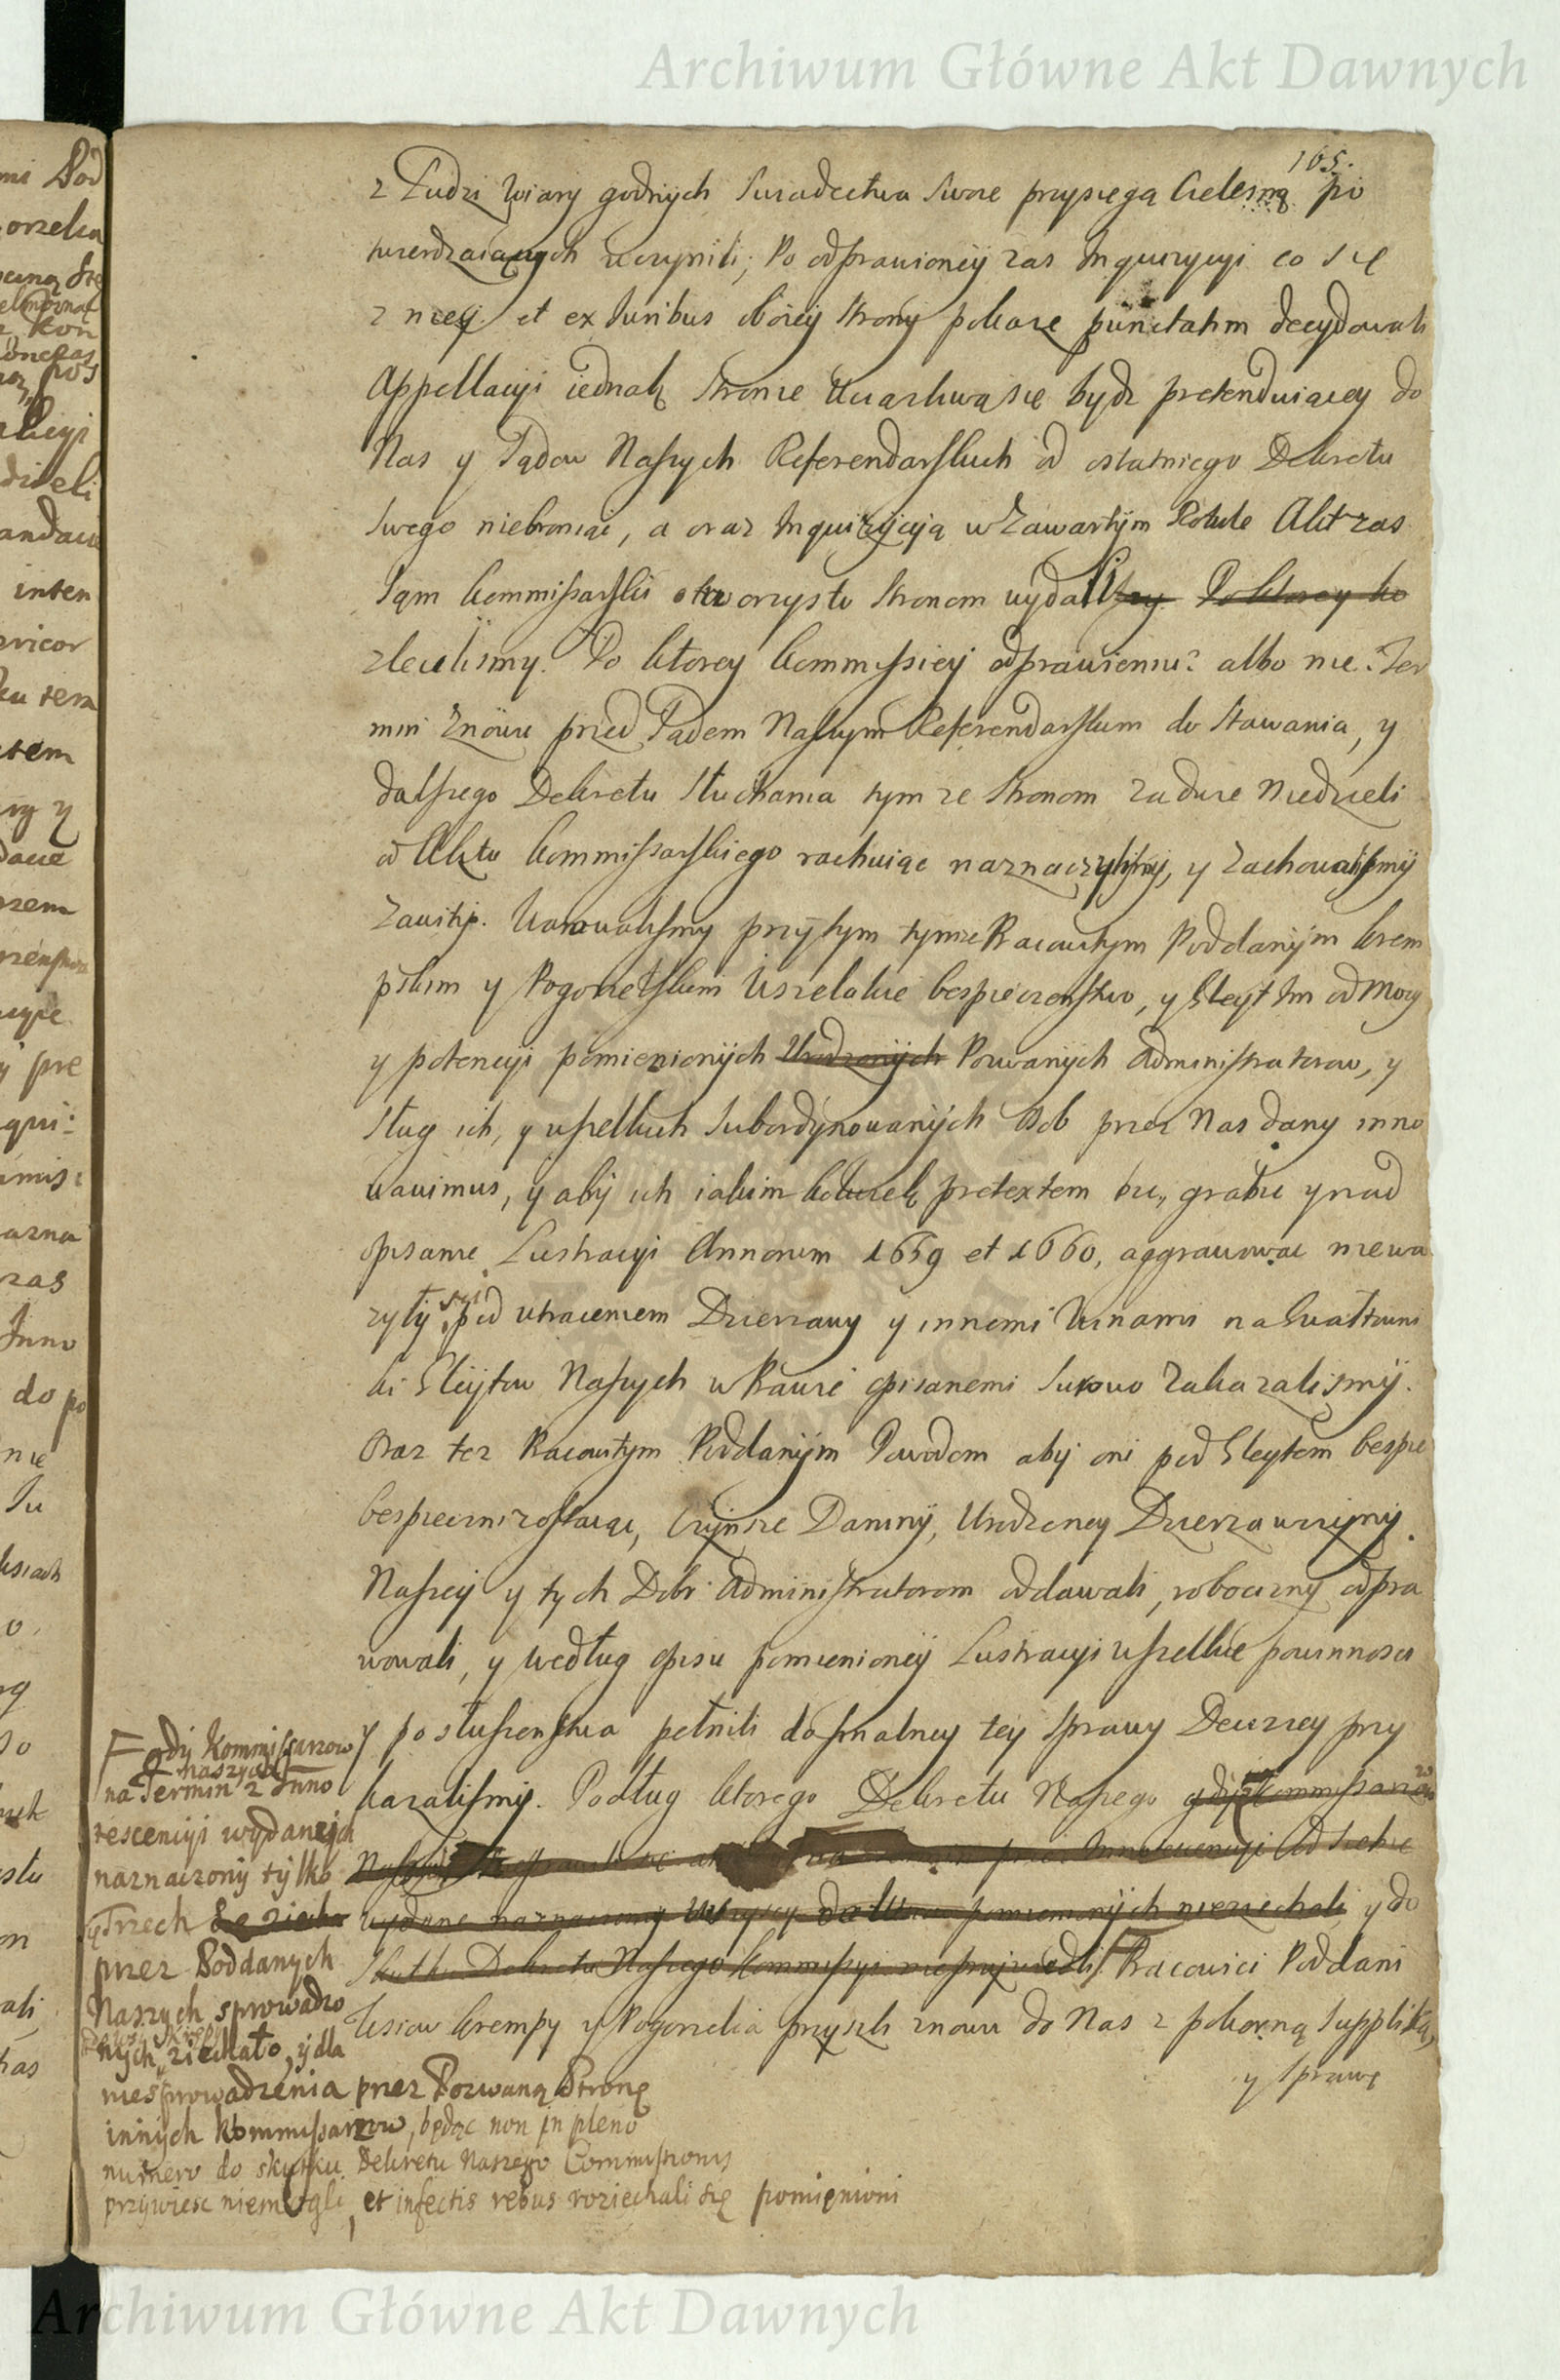 Archiwum Główne Akt Dawnych
165.
z Ludzi wiary godnych Swiadectwa Swoie przysięgą Cielesną po
twierdzaiących uczynili; Po odprawioney zas Inquizycyi co się
z niey et ex Iuribus oboiey Strony pokaże punctatim decydowali
Appellacyi iednak Stronie Uciązliwą się bydz pretenduiącey do
Nas y Sądow Naszych Referendarskich od ostatniego Dekretu
Swego niebroniąc, a oraz Inquizycyą w Zawartym Rotule Akt zas
Sąm Kommissarski otworzysto Stronom wydali
zlecilismy. Po ktorey Kommissiey odprawieniu? albo nie? Ter
min Znowu przed Sądem Naszym Referendarskim do Stawania, y
dalszego Dekretu Słuchania tym ze Stronom za dwie Niedzieli
od Aktu Kommissarskiego rachuiąc naznaczylismy, y Zachowalismy
Zawity. Warowalismy przy tym tymze Pracowitym Poddanym Krem
pskim y Pogorzelskim Wszelakie bespieczenstwo, y Gleyt Im od Mocy
y potencyi pomienionych Urodzonych Pozwanych Administratorow, y
Sług ich, y wszelkich Subordynowanych Osob przez Nas dany inno
vavimus, y aby ich iakim kolwiek pretextem bic, grabic y nad
opisanie Lustracyi Annorum 1659 et 1660, aggrawowac niewa
zyły się pod utraceniem Dzierzawy y innemi Winami na Gwałtowni
ki Gleytow Naszych w Prawie opisanemi Surowo Zakazalismy.
Oraz tez Pracowitym Poddanym Powodom aby oni pod Gleytem bespie
bespieczni zostaiąc, Czynsze Daniny, Urodzoney Dzierzawczyny
Naszey y tych Dobr Administratorom oddawali, robocizny odpra
wowali, y według opisu pomienioney Lustracyi wszelkie powinnosci
y posłuszenstwa pełnili do finalney tey Sprawy Deciziey przy
kazalismy. Podług ktorego Dekretu Naszego gdy Kommissarzow
wydane naznaczony Wszyscy do pomienionych nieziechali, y do
Skutku Dekretu Naszego Kommissyi nieprzywiedli Pracowici Poddani
Wsiow Krempy y Pogorzelia przyszli znowu do Nas z pokorną Suppliką,
y Sprawę
gdy Kommissarzow
naszych
na Termin z Inno
tescencyi wydaney
naznaczony tylko
Trzech
przez Poddanych
Naszych sprowadzo
nych ziechało, y dla
niesprowadzenia przez Pozwaną Stronę
innych Kommissarzow, będąc non in pleno
numero do skutku Dekretu Naszego Commissionis
przywiesc niemogli, et infectis rebus roziechali się pomienioni
Archiwum Główne Akt Dawnych